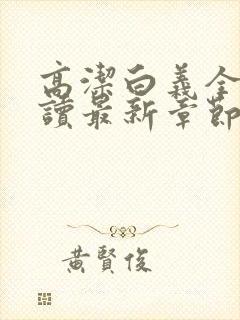 高潔白義全
讀最新章節
黃賢俊